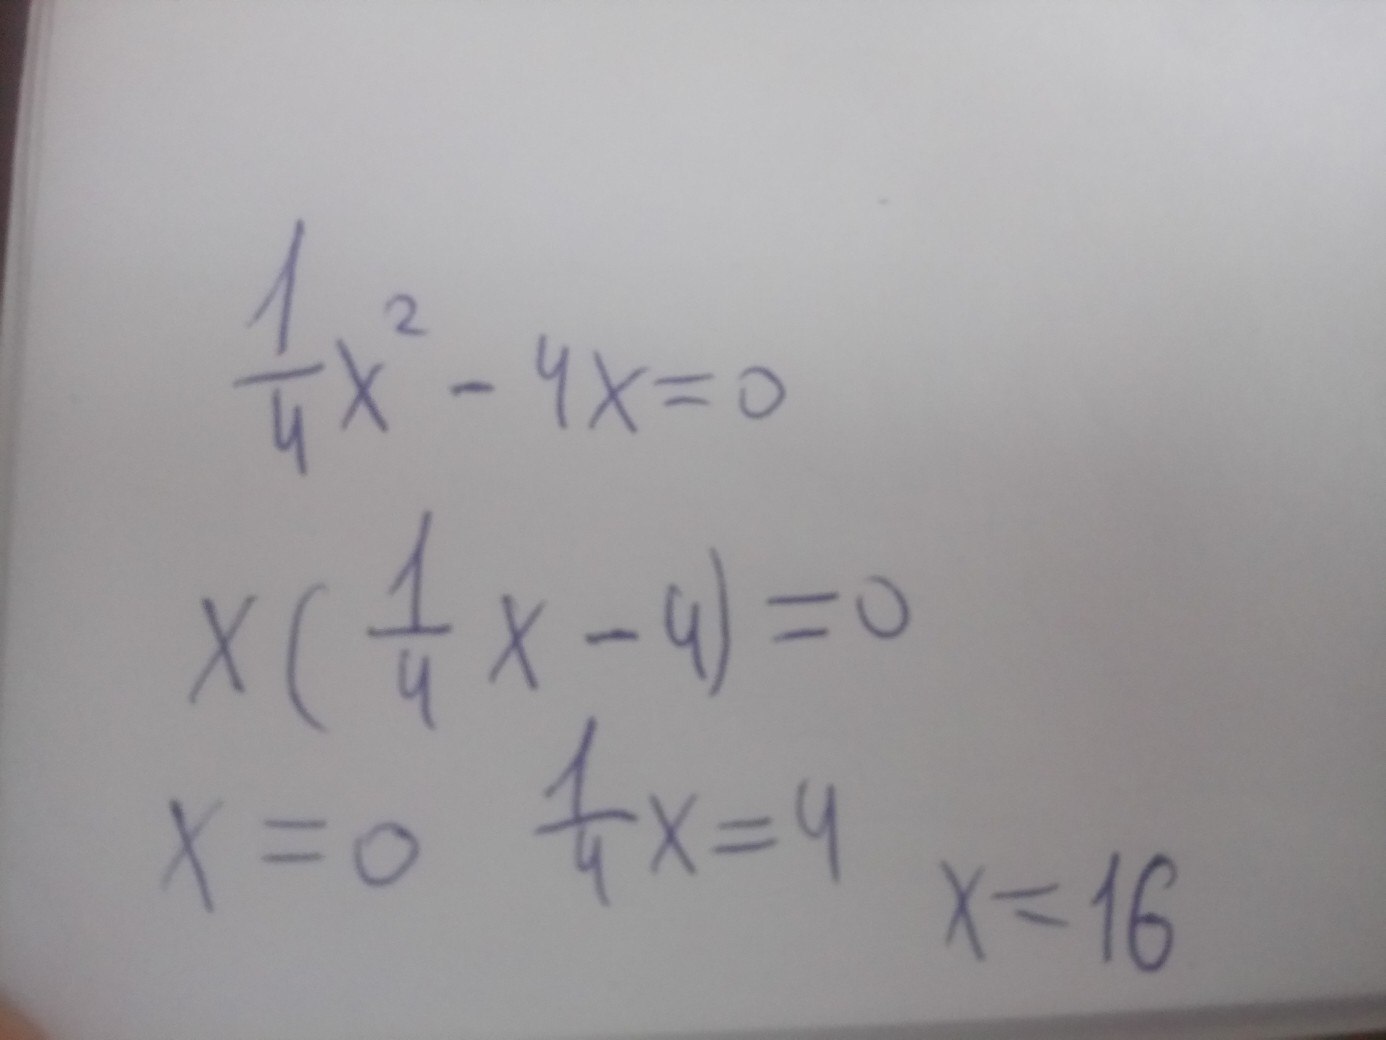 1/4 x² - 4x = 0
x(1/4 x - 4) = 0
x = 0 1/4 x = 4 x = 16